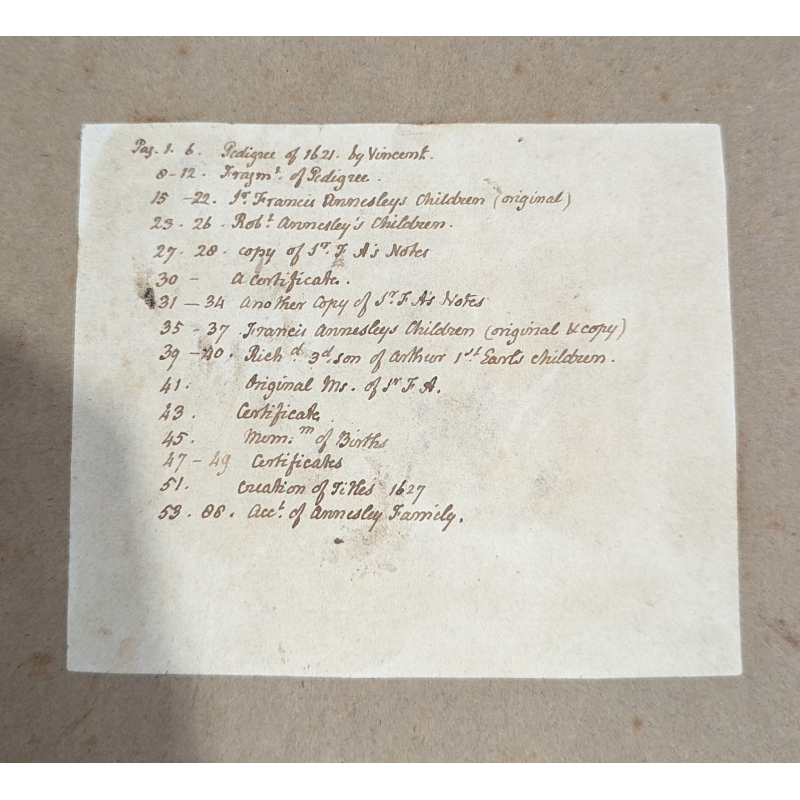 Pag. 1. 6. Pedigree of 1621. by Vincent.
8-12. Fragmt. of Pedigree.
15 -22. Sr. Francis Annesleys Children (original)
23. 26. Robt. Annesley's Children.
27. 28. copy of Sr. F A's Notes
30 - A Certificate.
31-34 Another Copy of Sr. F A's Notes
35-37 Francis Annesleys Children (original & copy)
39-40. Richd. 3d. son of Arthur 1st. Earl's children.
41. Original Ms. of Sr F A.
43. Certificate
45. Mem:m of Births
47-49 Certificates
51. Creation of Titles 1627
53. 88. Acct. of Annesley Family.